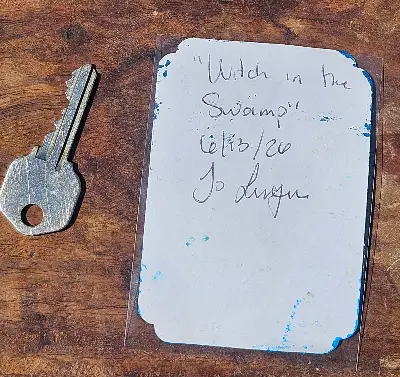 "Witch in the
Swamp"
6/13/26
Jo